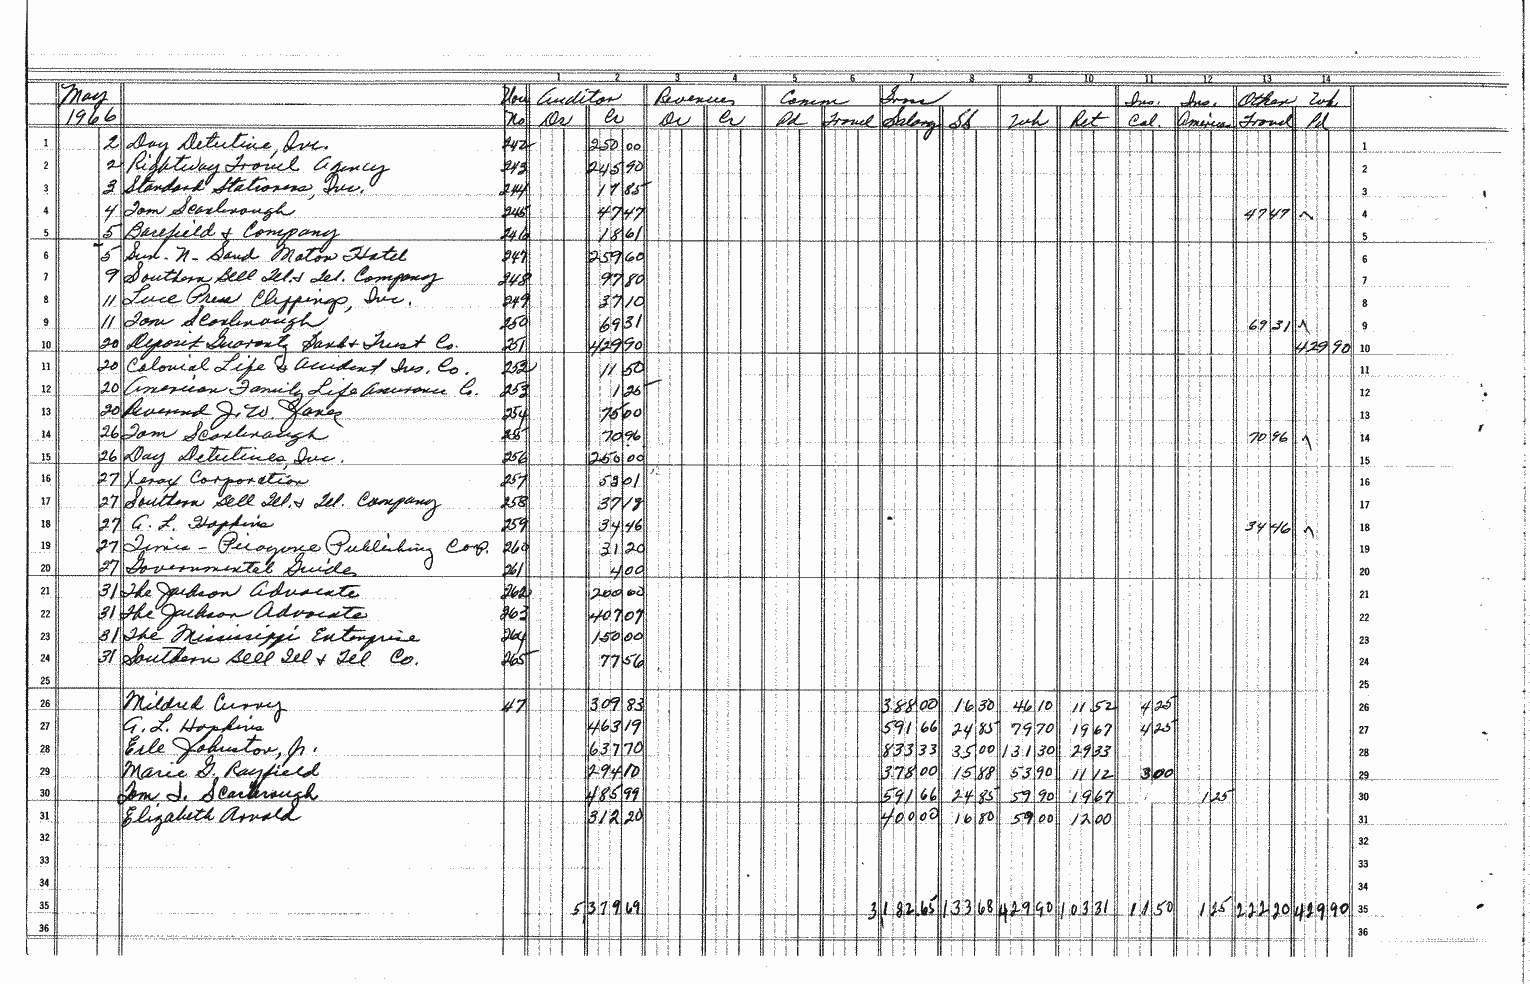 1 2 3 4 5 6 7 8 9 10 11 12 13 14
May Vou Auditor Revenues Comm Trav Ins. Ins. Other Wh
1966 No Dr Cr Dr Cr Pd Travel Salary SS Wh Ret Col. American Travel Pd
1 2 Day Detective, Inc. 242 250 00 1
2 2 Rightway Travel Agency 243 245 90 2
3 3 Standard Stationers, Inc. 244 17 85 3
4 4 Tom Scarbrough 245 47 47 47 47 4
5 5 Barefield & Company 246 18 61 5
6 5 Sun-N-Sand Motor Hotel 247 259 60 6
7 9 Southern Bell Tel. & Tel. Company 248 97 80 7
8 11 Luce Press Clippings, Inc. 249 37 10 8
9 11 Tom Scarbrough 250 69 31 69 31 9
10 20 Deposit Guaranty Bank & Trust Co. 251 429 90 429 90 10
11 20 Colonial Life & Accident Ins. Co. 252 11 50 11
12 20 American Family Life Assurance Co. 253 1 25 12
13 20 Reverend J. W. Jones 254 75 00 13
14 26 Tom Scarbrough 255 70 96 70 96 14
15 26 Day Detectives, Inc. 256 250 00 15
16 27 Xerox Corporation 257 53 01 16
17 27 Southern Bell Tel. & Tel. Company 258 37 18 17
18 27 A. L. Hopkins 259 34 46 34 46 18
19 27 Times-Picayune Publishing Corp. 260 31 20 19
20 27 Governmental Guides 261 4 00 20
21 31 The Jackson Advocate 262 200 00 21
22 31 The Jackson Advocate 263 407 07 22
23 31 The Mississippi Enterprise 264 150 00 23
24 31 Southern Bell Tel & Tel Co. 265 77 56 24
25 25
26 Mildred Curry 47 309 83 388 00 16 30 46 10 11 52 4 25 26
27 A. L. Hopkins 463 19 591 66 24 85 79 70 19 67 4 25 27
28 Erle Johnston, Jr. 637 70 833 33 35 00 131 30 29 33 28
29 Marie G. Rayfield 294 10 378 00 15 88 53 90 11 12 3 00 29
30 Tom T. Scarbrough 485 99 591 66 24 85 59 90 19 67 1 25 30
31 Elizabeth Arnold 312 20 400 00 16 80 59 00 12 00 31
32 32
33 33
34 34
35 5,379 69 3,182 65 133 68 429 90 103 31 11 50 1 25 222 20 429 90 35
36 36